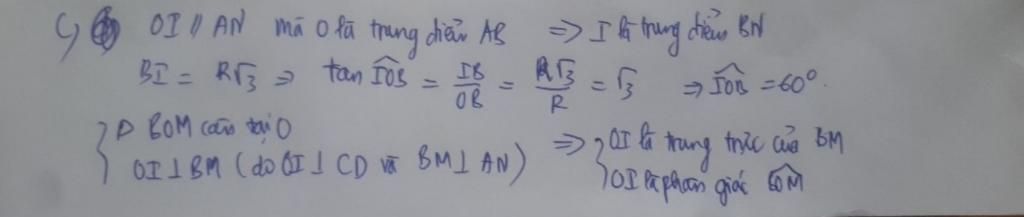 c) OI // AN mà O là trung điểm AB => I là trung điểm BN
BI = R√3 => tan IOB = IB/OB = R√3/R = √3 => IOB = 60°.
Δ BOM cân tại O
OI ⊥ BM (do OI ⊥ CD và BM ⊥ AN) => OI là trung trực của BM
OI là phân giác BOM